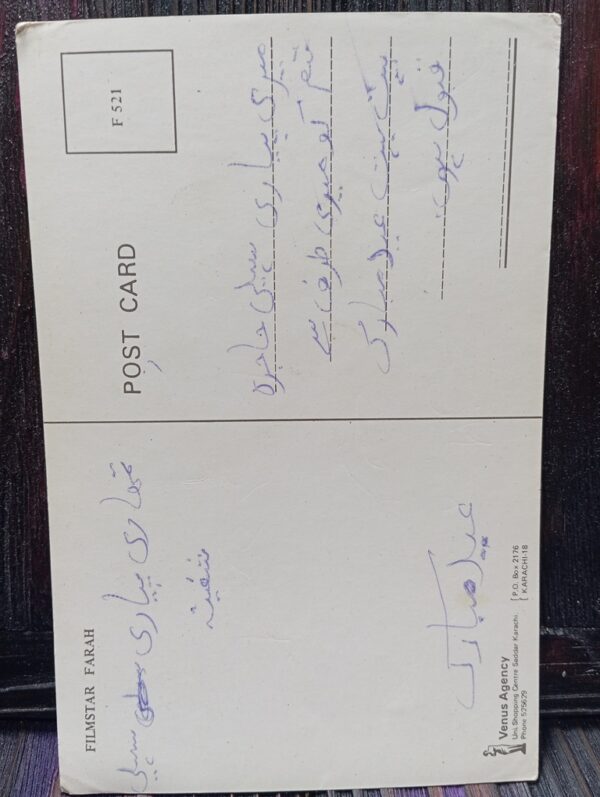 FILMSTAR FARAH
تمہاری پیاری سہیلی
شفیہ
عید مبارک
Venus Agency
Uni Shopping Centre Saddar Karachi.
Phone 525629
P.O. Box 2176
KARACHI-18
POST CARD
F 521
میری پیاری سہیلی حاجرہ
تم کو میری طرف سے
بہت بہت عید مبارک
قبول ہو۔